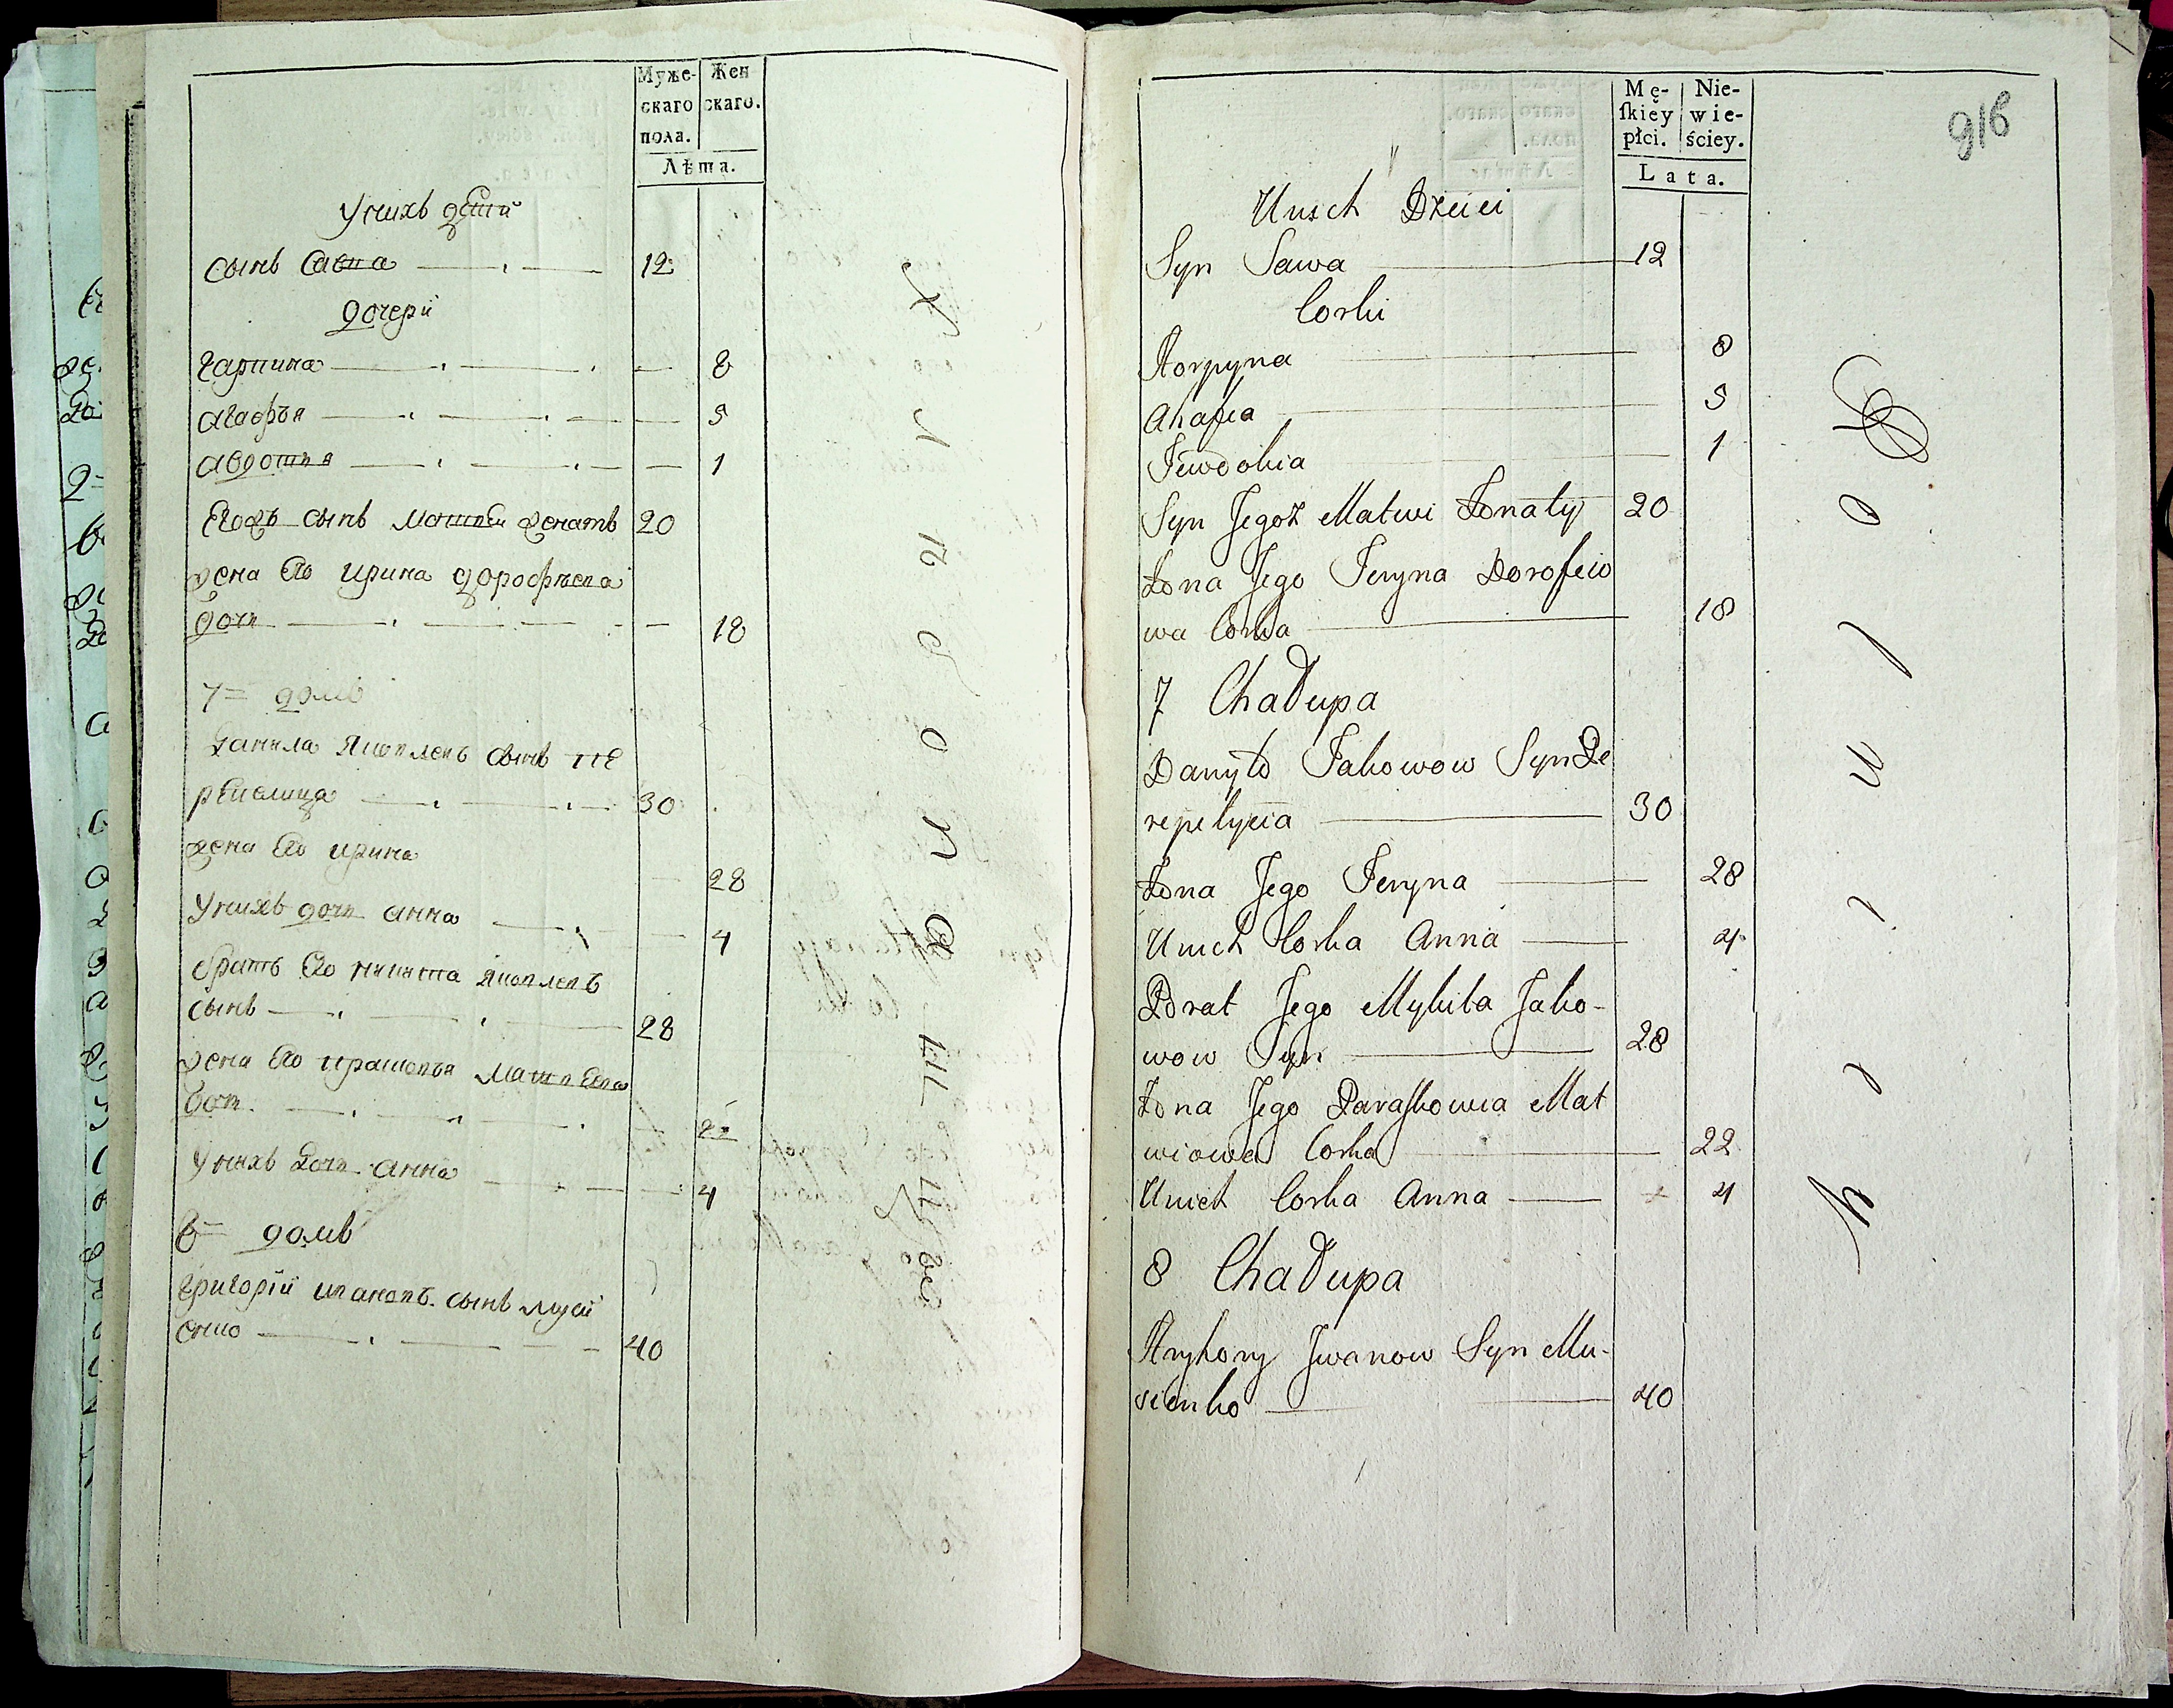 Муже-
скаго
пола.
Жен
скаго.
Лѣта.
У нихъ дѣти
сынъ Савва 12
дочери
Гарпина 8
Агафья 5
Авдотья 1
Егожъ сынъ Матвей женатъ 20
жена Его Ирина Дорофѣева
дочь 18
7= домъ
Данила Яковлевъ сынъ Пе
репелица 30
жена Его Ирина
28
У нихъ дочь Анна
4
братъ Его Никита Яковлевъ
сынъ 28
жена Его Прасковья Матвѣева
дочь 22
У нихъ дочь Анна 4
8= домъ
Григорій Ивановъ сынъ Мусі
енко 40
Mę-
ſkiéy
płci.
Nie-
wie-
ściey.
Lata.
916
Unich Dzieci
Syn Sawa 12
Corki
Horpyna 8
Ahafia 5
Jewdokia 1
Syn Jegoż Matwi Żonaty 20
Żona Jego Jeryna Dorofeio
wa Corka 18
7 Chałupa
Danyło Jakowow Syn Pe
repełycia 30
Żona Jego Jeryna 28
Unich Corka Anna 4
Brat Jego Mykita Jako-
wow Syn 28
Żona Jego Paraſkowia Mat
wiowa Corka 22
Unich Corka Anna 4
8 Chałupa
Hryhory Jwanow Syn Mu-
sienko 40